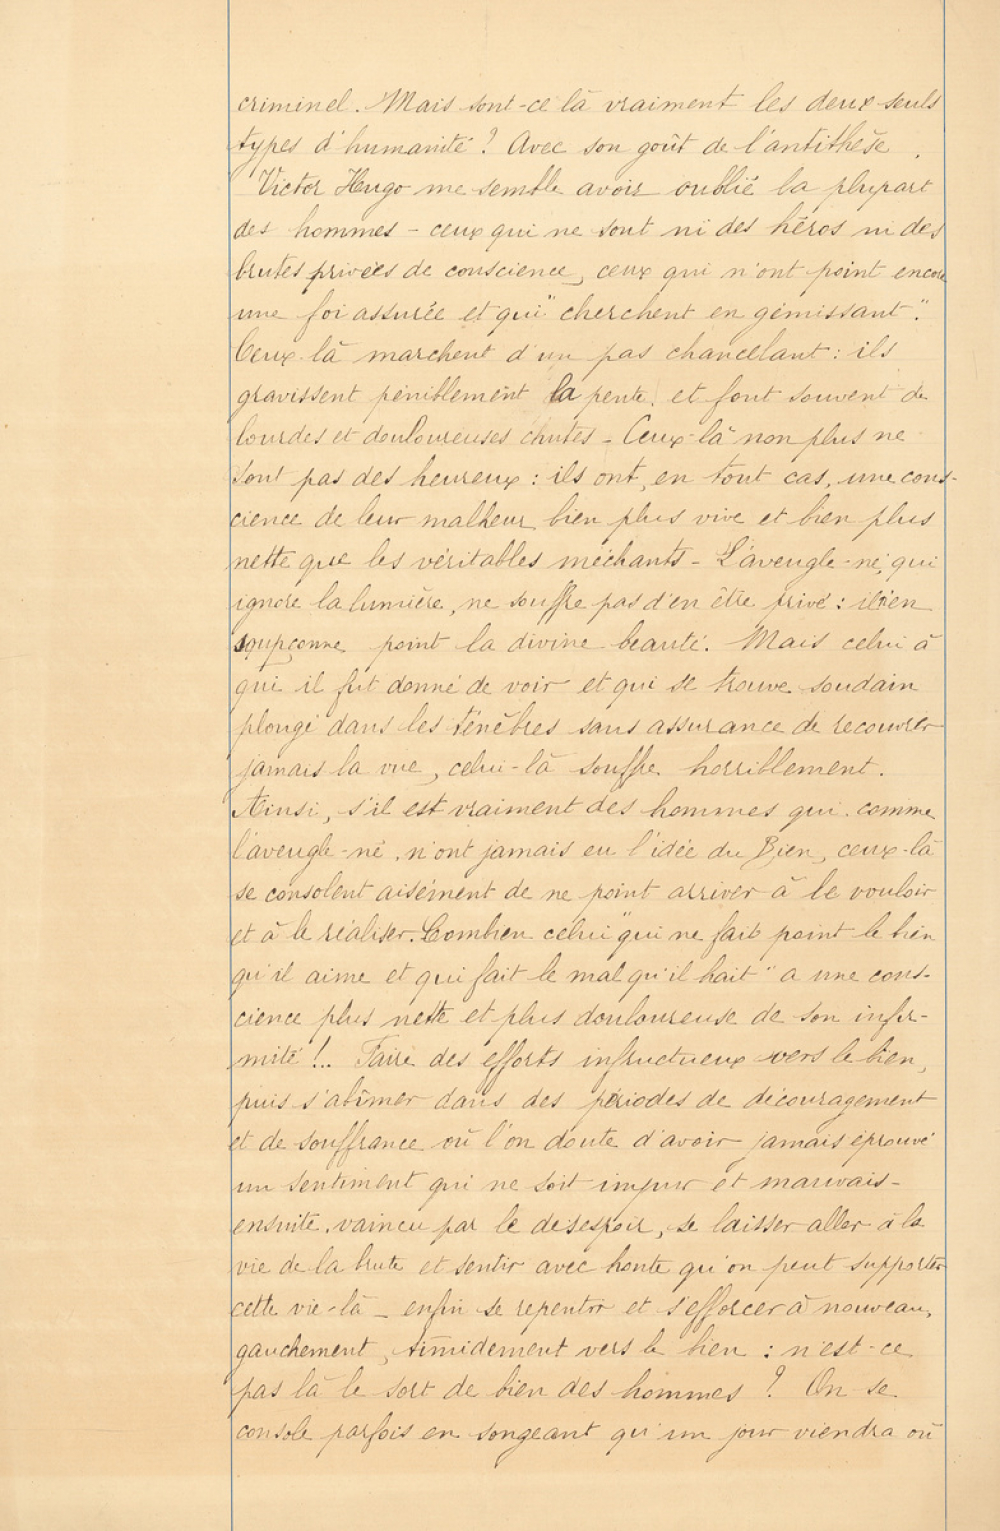 criminel. Mais sont-ce là vraiment les deux seuls
types d'humanité ? Avec son goût de l'antithèse,
Victor Hugo me semble avoir oublié la plupart
des hommes - ceux qui ne sont ni des héros ni des
brutes privées de conscience, ceux qui n'ont point encore
une foi assurée et qui "cherchent en gémissant".
Ceux-là marchent d'un pas chancelant : ils
gravissent péniblement la pente, et font souvent de
lourdes et douloureuses chutes - Ceux-là non plus ne
sont pas des heureux : ils ont, en tout cas, une cons-
cience de leur malheur bien plus vive et bien plus
nette que les véritables méchants - L'aveugle-né, qui
ignore la lumière, ne souffre pas d'en être privé : il n'en
soupçonne point la divine beauté. Mais celui à
qui il fut donné de voir et qui se trouve soudain
plongé dans les ténèbres sans assurance de recouvrer
jamais la vue, celui-là souffre horriblement.
Ainsi, s'il est vraiment des hommes qui, comme
l'aveugle-né, n'ont jamais eu l'idée du Bien, ceux-là
se consolent aisément de ne point arriver à le vouloir
et à le réaliser. Combien celui "qui ne fait point le bien
qu'il aime et qui fait le mal qu'il hait" a une cons-
cience plus nette et plus douloureuse de son infir-
mité !.. Faire des efforts infructueux vers le bien,
puis s'abîmer dans des périodes de découragement
et de souffrance où l'on doute d'avoir jamais éprouvé
un sentiment qui ne soit impur et mauvais -
ensuite, vaincu par le désespoir, se laisser aller à la
vie de la brute et sentir avec honte qu'on peut supporter
cette vie-là - enfin se repentir et s'efforcer à nouveau,
gauchement, timidement vers le bien : n'est-ce
pas là le sort de bien des hommes ? On se
console parfois en songeant qu'un jour viendra où